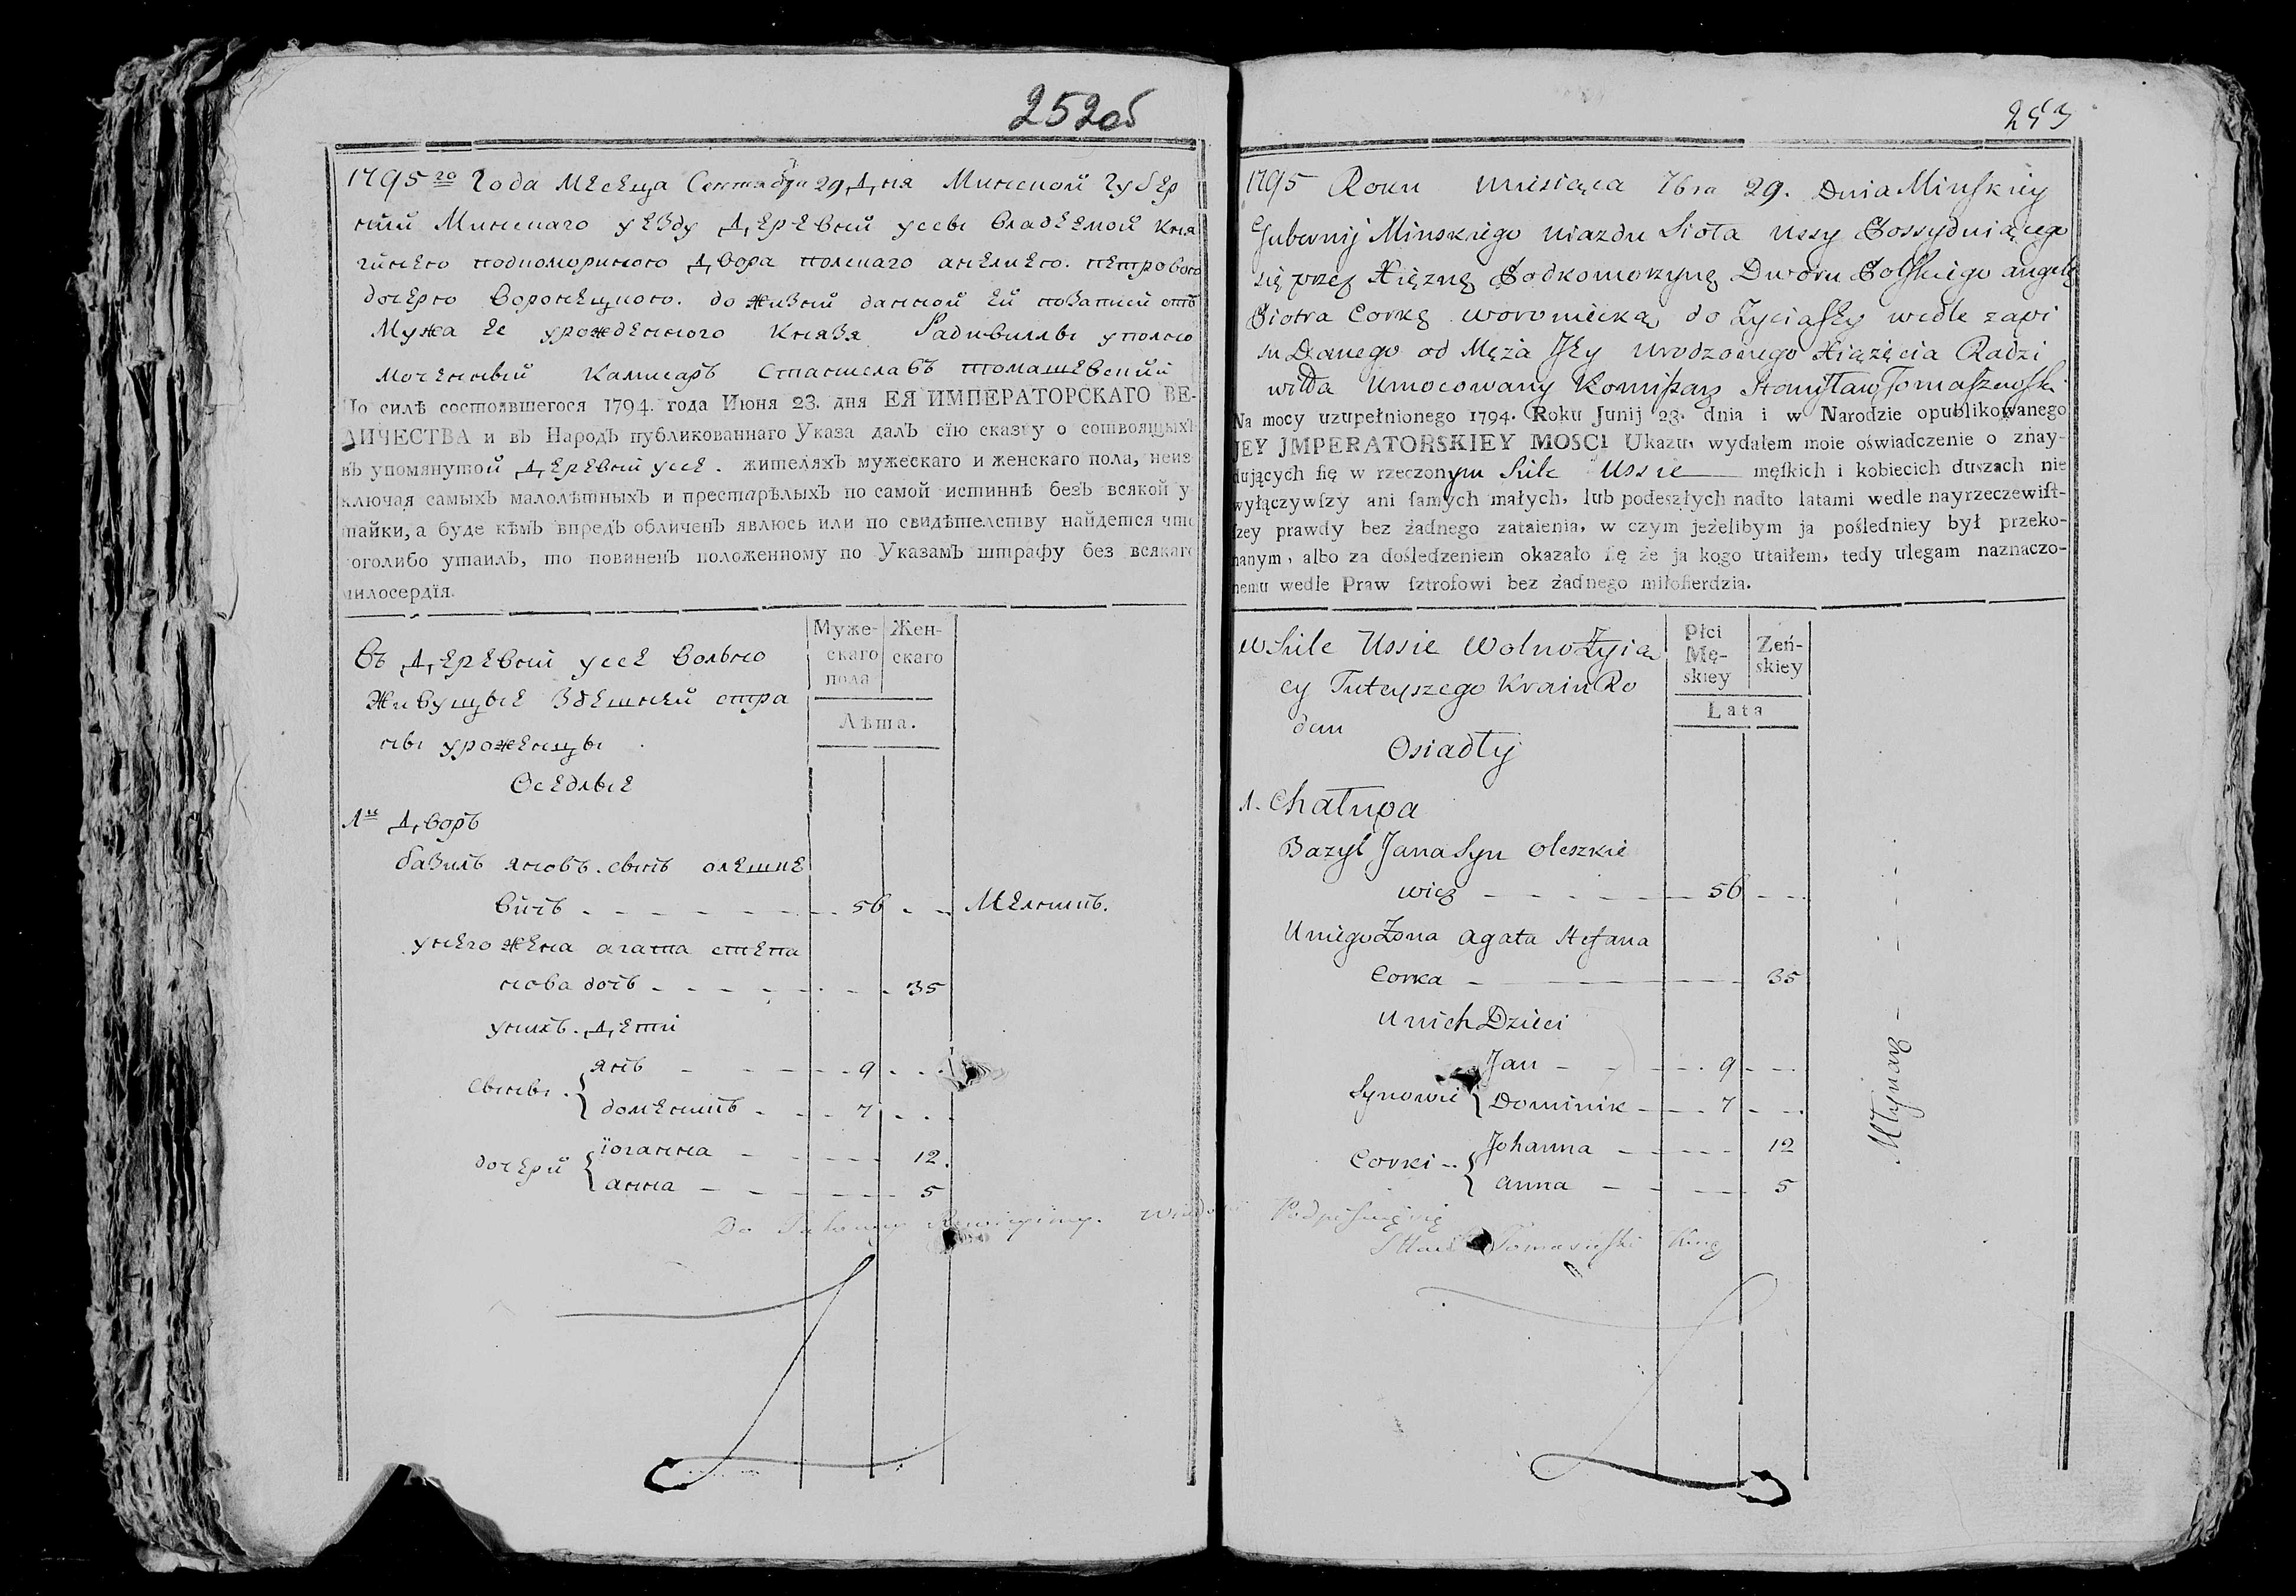 252об
1795го Года месеца Сентября 29 дня Минской губер
ний Минскаго уезду деревни уссы владеемой кня
гинею подкомориною двора полскаго анелиею. петровою
дочерю воронецкою. до живий данной ей позаписи отъ
Мужа ее урожденного Князя Радивиллы уполно
моченный Камисаръ Станиславъ томашевский
По силѣ состоявшегося 1794. года Июня 23. дня ЕЯ ИМПЕРАТОРСКАГО ВЕ-
ЛИЧЕСТВА и въ Народъ публикованнаго Указа далъ сїю сказку о состоящихъ
въ упомянутой деревни уссе. жителяхъ мужескаго и женскаго пола, неиз
ключая самыхъ малолѣтныхъ и престарѣлыхъ по самой истиннѣ безъ всякой у
тайки, а буде кѣмъ впредь обличенъ явлюсь или по свидѣтелству найдется что
коголибо утаилъ, то повиненъ положенному по Указамъ штрафу без всякаго
милосердїя.
Муже-
скаго
пола
Жен-
скаго
Лѣта.
Въ деревни уссе волно
Живущые здешней стра
ны уроженцы
Оседлые
1й дворъ
базиль яновъ. сынъ олешке
вичъ 56 Мелникъ.
унего жена агата степа
нова дочъ 35
унихъ. дети
сыны.
янъ 9
доменикъ 7
дочери
іоганна 12.
анна 5
253
1795 Roku miesiąca 7bra 29. Dnia Minskiey
Gubernij Minskiego uiazdu Sioła Ussy Possyduiącego
się przez Xiężnę Podkomorzynę Dworu Polskiego angelę
Piotra Corkę woroniecką do Zycia Jey wedle zapi
su Danego od Męża Jey urodzonego Xiążęcia Radzi
wiłła Umocowany Komisarz Stanisław Tomaszewski
Na mocy uzupełnionego 1794. Roku Junij 23. dnia i w Narodzie opublikowanego
JEY JMPERATORSKIEY MOSCI Ukazu, wydałem moie oświadczenie o znay-
dujących ſię w rzeczonym Siele Ussie męſkich i kobiecich duszach nie
wyłączywſzy ani ſamych małych, lub podeszłych nadto latami wedle nayrzeczewiſt-
ſzey prawdy bez żadnego zataienia, w czym jeżelibym ja poźledniey był przeko-
nanym, albo za dośledzeniem okazało ſię że ja kogo utaiłem, tedy ulegam naznaczo-
nemu wedle Praw ſztrofowi bez żadnego miłoſierdzia.
Płci
Mę-
skiey
Zeń-
skiey
Lata
w Siele Ussie Wolno Zyią
cy Tuteyszego Kraiu Ro
dem
Osiadły
1. Chałupa
Bazyl Jana Syn Oleszkie
wicz 56
U niego Żona Agata Stefana
Corka 35
U nich Dzieci
Synowie
Jan 9
Dominik 7
Corki
Johanna 12
Anna 5
Młynarz
Do Takowey Rewizyiney. Wiadom Podpisuię się
Tomaszewski